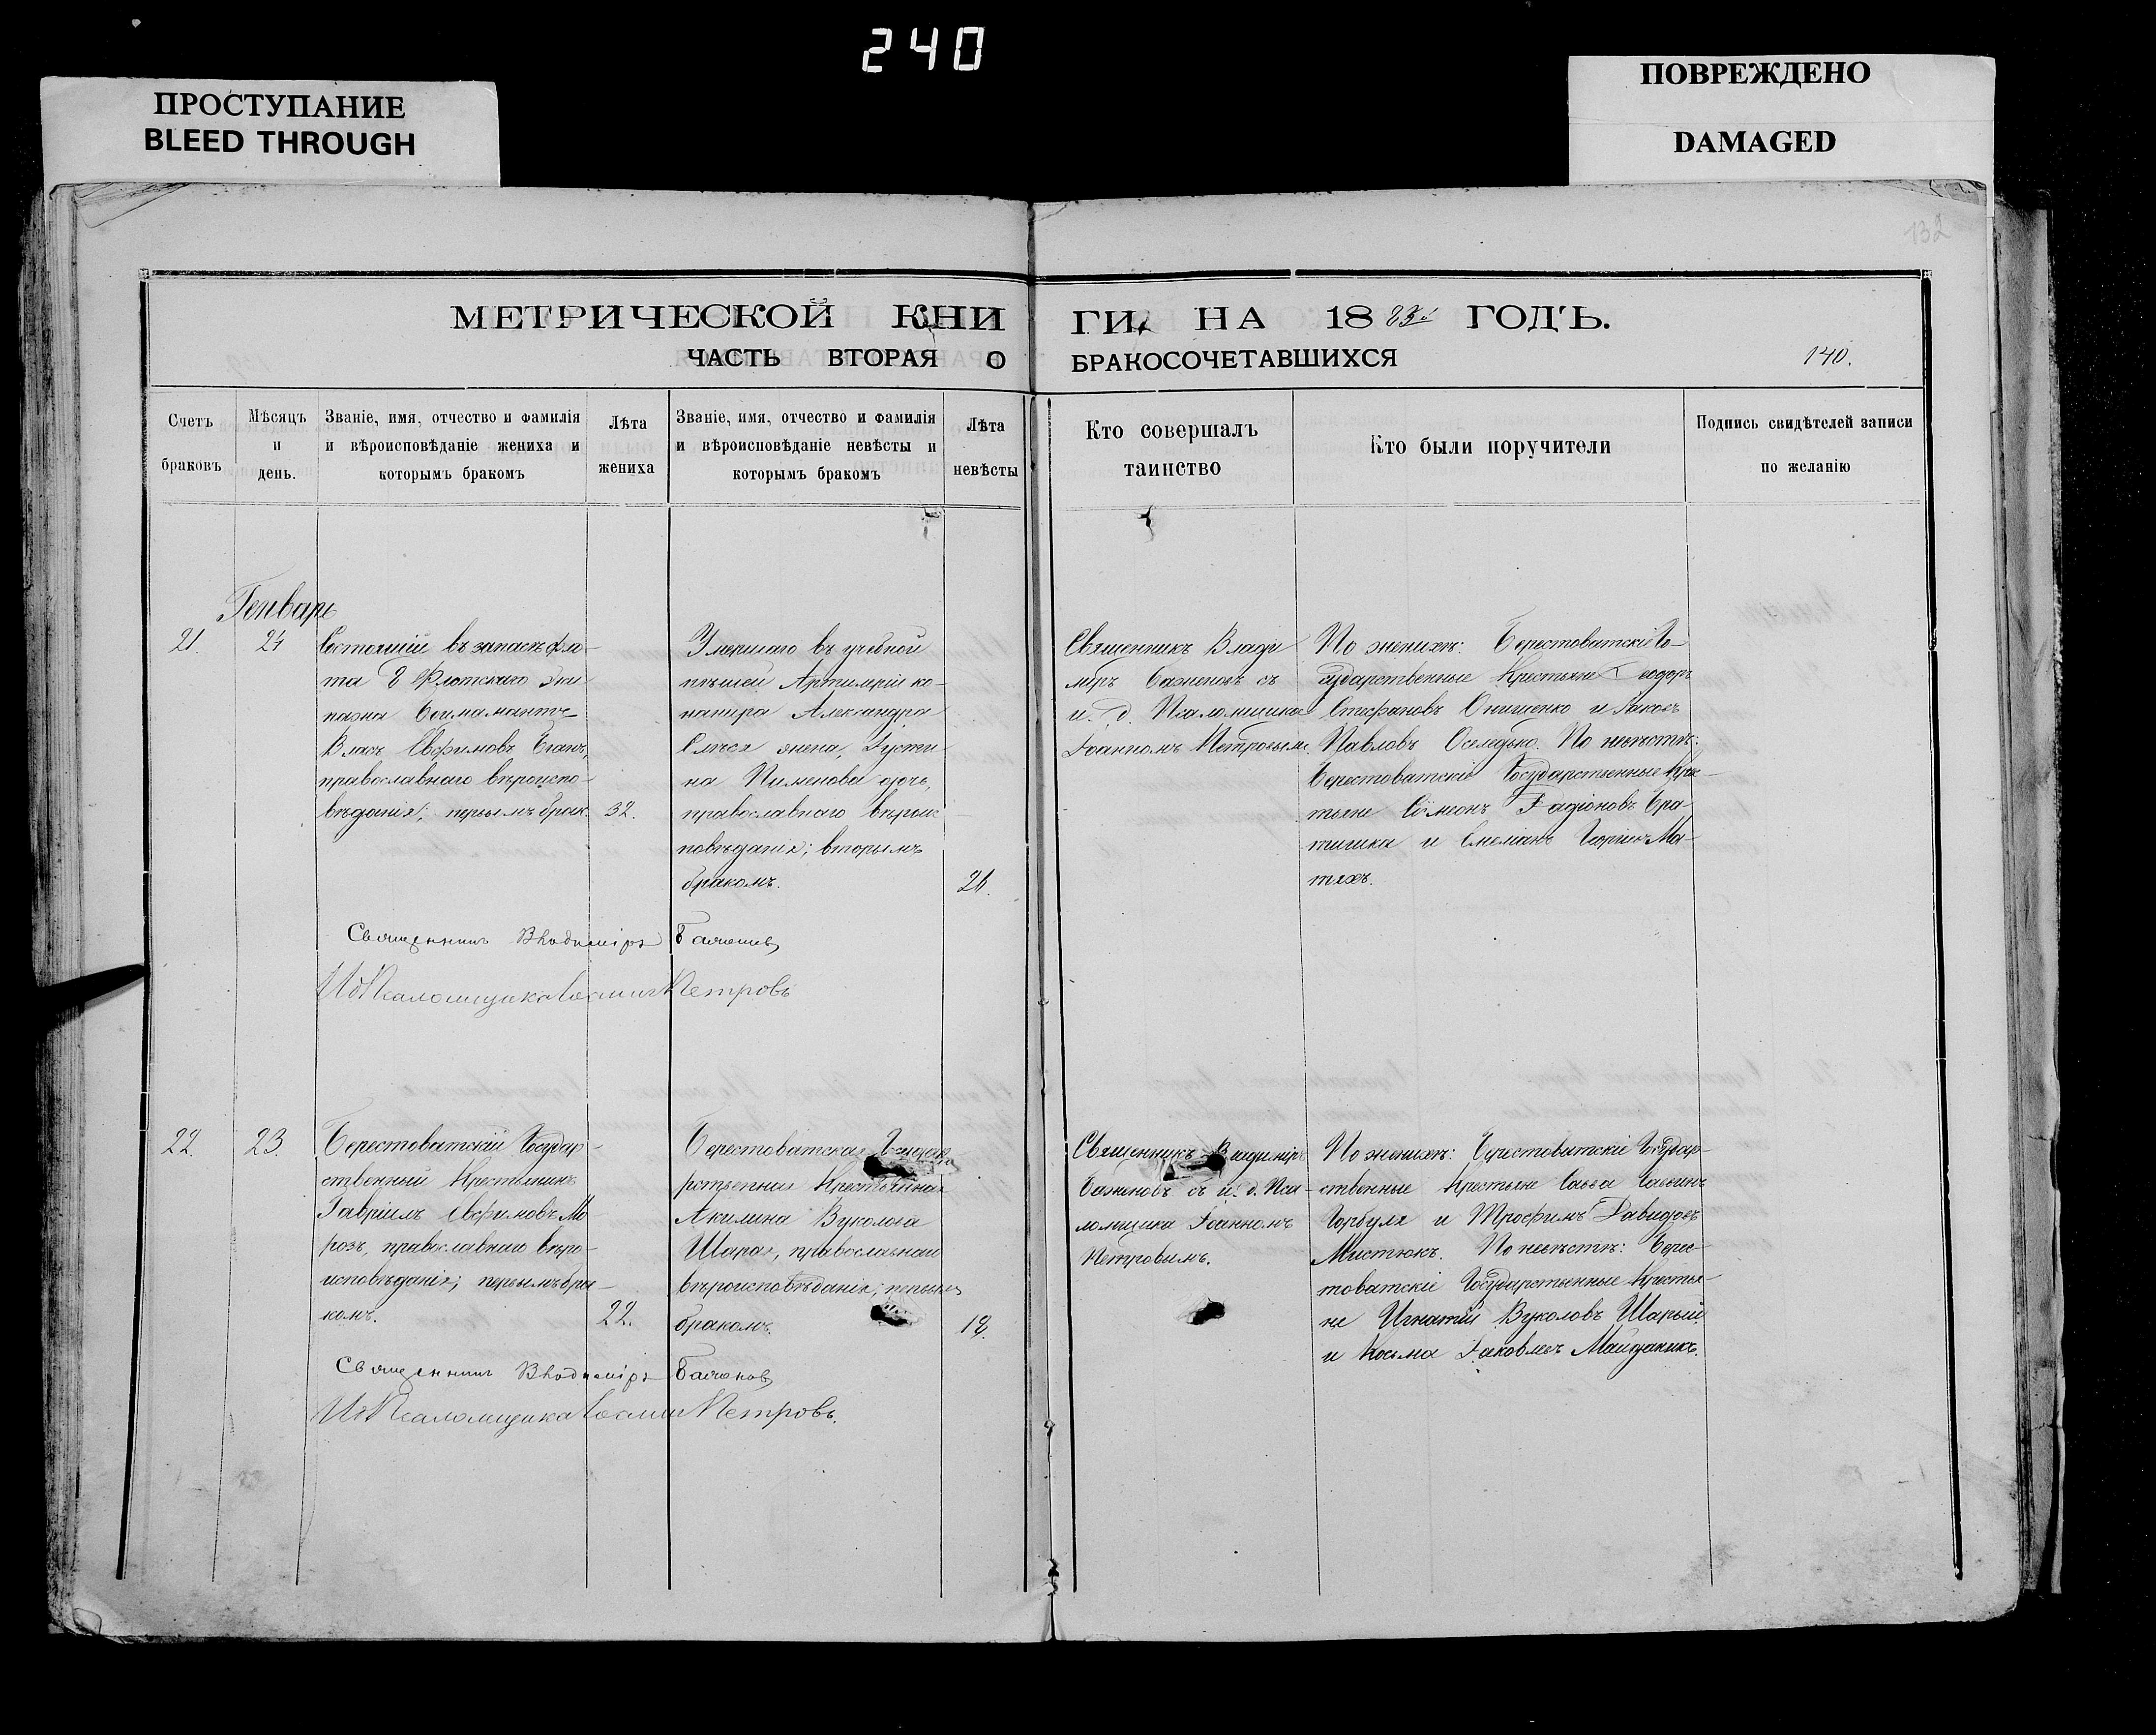 240
ПРОСТУПАНИЕ
BLEED THROUGH
ПОВРЕЖДЕНО
DAMAGED
132
МЕТРИЧЕСКОЙ КНИ
ГИ, НА 1883й ГОДЪ.
ЧАСТЬ ВТОРАЯ О
БРАКОСОЧЕТАВШИХСЯ
140.
Счетъ
браковъ
Мѣсяцъ
и
день.
Званіе, имя, отчество и фамилія
и вѣроисповѣданіе жениха и
которымъ бракомъ
Лѣта
жениха
Званіе, имя, отчество и фамилія
и вѣроисповѣданіе невѣсты и
которымъ бракомъ
Лѣта
невѣсты
Кто совершалъ
таинство
Кто были поручители
Подпись свидѣтелей записи
по желанію
Генварь
21.
Состоящій въ запасѣ фло-
та 2 Флотскаго Эки-
пажа
Власъ Евфимовъ
православнаго вѣроиспо-
вѣданія; первымъ брак.
32.
Умершаго въ учебной
пѣшей Артилеріи ко-
нанира Александра
жена, Густи
на Пименова
православнаго вѣроис
повѣданія; вторымъ
бракомъ.
Священникъ Влади
міръ Баженовъ съ
и. д. Псаломщика
Іоанномъ Петровымъ.
По женихѣ: Берестоватскіе Го-
сударственные Крестьяне Ѳеодоръ
Стефановъ Онищенко и Іаковъ
Павловъ Оселедько. По невѣстѣ:
Берестоватскіе Государственные Крес-
тьяне Сѵмеонъ
и Ма-
тяхъ.
Священникъ Владиміръ Баженовъ
ИдПсаломщика Іоаннъ Петровъ
22.
23.
Берестоватскій Государ-
ственный Крестьянинъ
Гавріилъ Евфимовъ Мо
розъ, православнаго вѣро-
исповѣданія; первымъ бра-
комъ.
22.
Берестоватская
рственная Крестьянка
Акилина Вуколова
Шарая, православнаго
вѣроисповѣданія; первымъ
бракомъ.
18.
Священникъ Владиміръ
Баженовъ съ и. д. Пса-
ломщика Іоанномъ
Петровымъ.
По женихѣ: Берестоватскіе Государ-
ственные Крестьяне Савва Саввинъ
Горбуля и Трофимъ Давидовъ
Мистюкъ. По невѣстѣ: Берес-
товатскіе Государственные Крестья-
не Игнатій Вуколовъ Шарый
и Косма Іаковлевъ Майданикъ.
Священникъ Владиміръ Баженовъ
ИдПсаломщика Іоаннъ Петровъ.